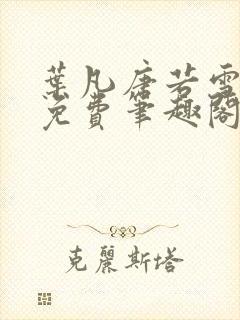 葉凡唐若雪
免費筆趣閣
克麗斯塔